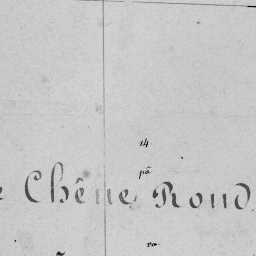 14.
pã
e Chêne Rond
ro